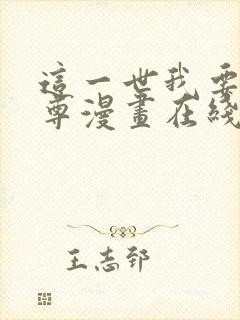 這一世我要
尊漫畫在綫
王志郅